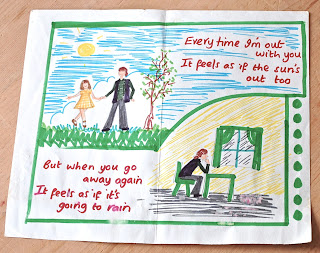 Every time I'm out
with you
It feels as if the sun's
out too
But when you go
away again
It feels as if it's
going to rain